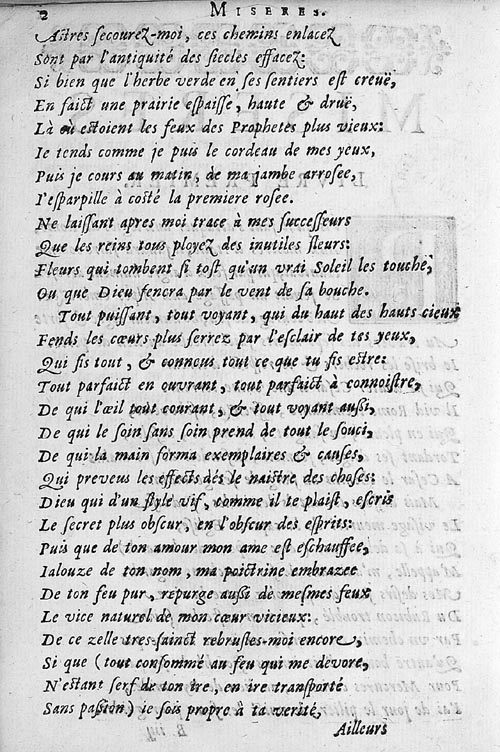 2 MISERES.
Astres ſecourez-moi, ces chemins enlacez
Sont par l'antiquité des ſiecles effacez:
Si bien que l'herbe verde en ſes ſentiers eſt creuë,
En faict une prairie eſpaiſſe, haute & druë,
Là où eſtoient les feux des Prophetes plus vieux:
Ie tends comme je puis le cordeau de mes yeux,
Puis je cours au matin, de ma jambe arroſee,
I'eſparpille à coſté la premiere roſee.
Ne laiſſant apres moi trace à mes ſucceſſeurs
Que les reins tous ployez des inutiles fleurs:
Fleurs qui tombent ſi toſt qu'un vrai Soleil les touche,
Ou que Dieu fenera par le vent de ſa bouche.
Tout puiſſant, tout voyant, qui du haut des hauts cieux
Fends les cœurs plus ſerrez par l'eſclair de tes yeux,
Qui fis tout, & connous tout ce que tu fis eſtre:
Tout parfaict en ouvrant, tout parfaict à connoiſtre,
De qui l'œil tout courant, & tout voyant auſſi,
De qui le ſoin ſans ſoin prend de tout le ſouci,
De qui la main forma exemplaires & cauſes,
Qui preveus les effects dés le naiſtre des choſes:
Dieu qui d'un ſtyle vif, comme il te plaiſt, eſcris
Le ſecret plus obſcur, en l'obſcur des eſprits:
Puis que de ton amour mon ame eſt eſchauffee,
Ialouze de ton nom, ma poictrine embrazee
De ton feu pur, repurge auſſi de meſmes feux
Le vice naturel de mon cœur vicieux:
De ce zelle tres-ſainct rebruſles-moi encore,
Si que (tout conſommé au feu qui me devore,
N'eſtant ſerf de ton ire, en ire tranſporté
Sans paſſion) ie ſois propre à ta verité,
Ailleurs